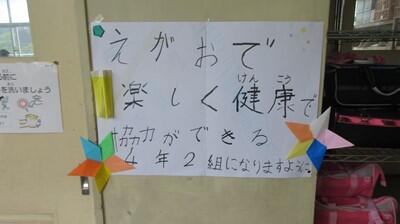 えがおで
けん こう
楽しく健康で
協力ができる
4年2組になりますように
る前に
を洗いましょう